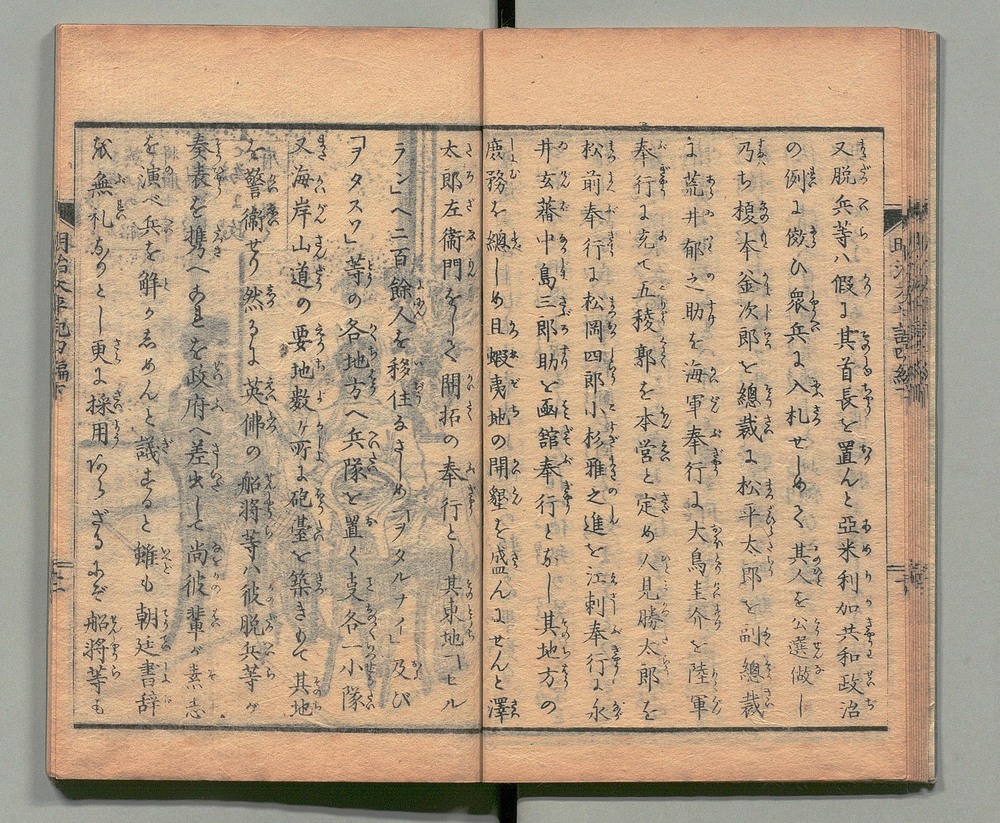 又脱兵等ハ假に其首長を置んと亞米利加共和政治
の例に傚ひ衆兵に入札せしめて其人を公選做し
乃ち榎本釜次郎を總裁に松平太郎を副總裁
に荒井郁之助を海軍奉行に大鳥圭介を陸軍
奉行に充て五稜郭を本営と定め人見勝太郎を
松前奉行に松岡四郎小杉雅之進を江刺奉行に永
井玄蕃中島三郎助を函舘奉行となし其地方の
庶務を總しめ且蝦夷地の開墾を盛んにせんと澤
太郎左衞門をして開拓の奉行とし其東地「ヒル
ラン」へ二百餘人を移住なさしめ「ヲタルナイ」及び
「ヲタスツ」等の各地方へ兵隊を置く支各一小隊
又海岸山道の要地数ヶ所に砲臺を築きめて其地
を警衞せり然るに英佛の船将等ハ彼脱兵等が
奏表を携へ来を政府へ差出して尚彼輩が素志
を演べ兵を解かしめんと議すると雖も朝廷書辞
を無礼なりとし更に採用ならざるにぞ船将等も
明治太平記四編下